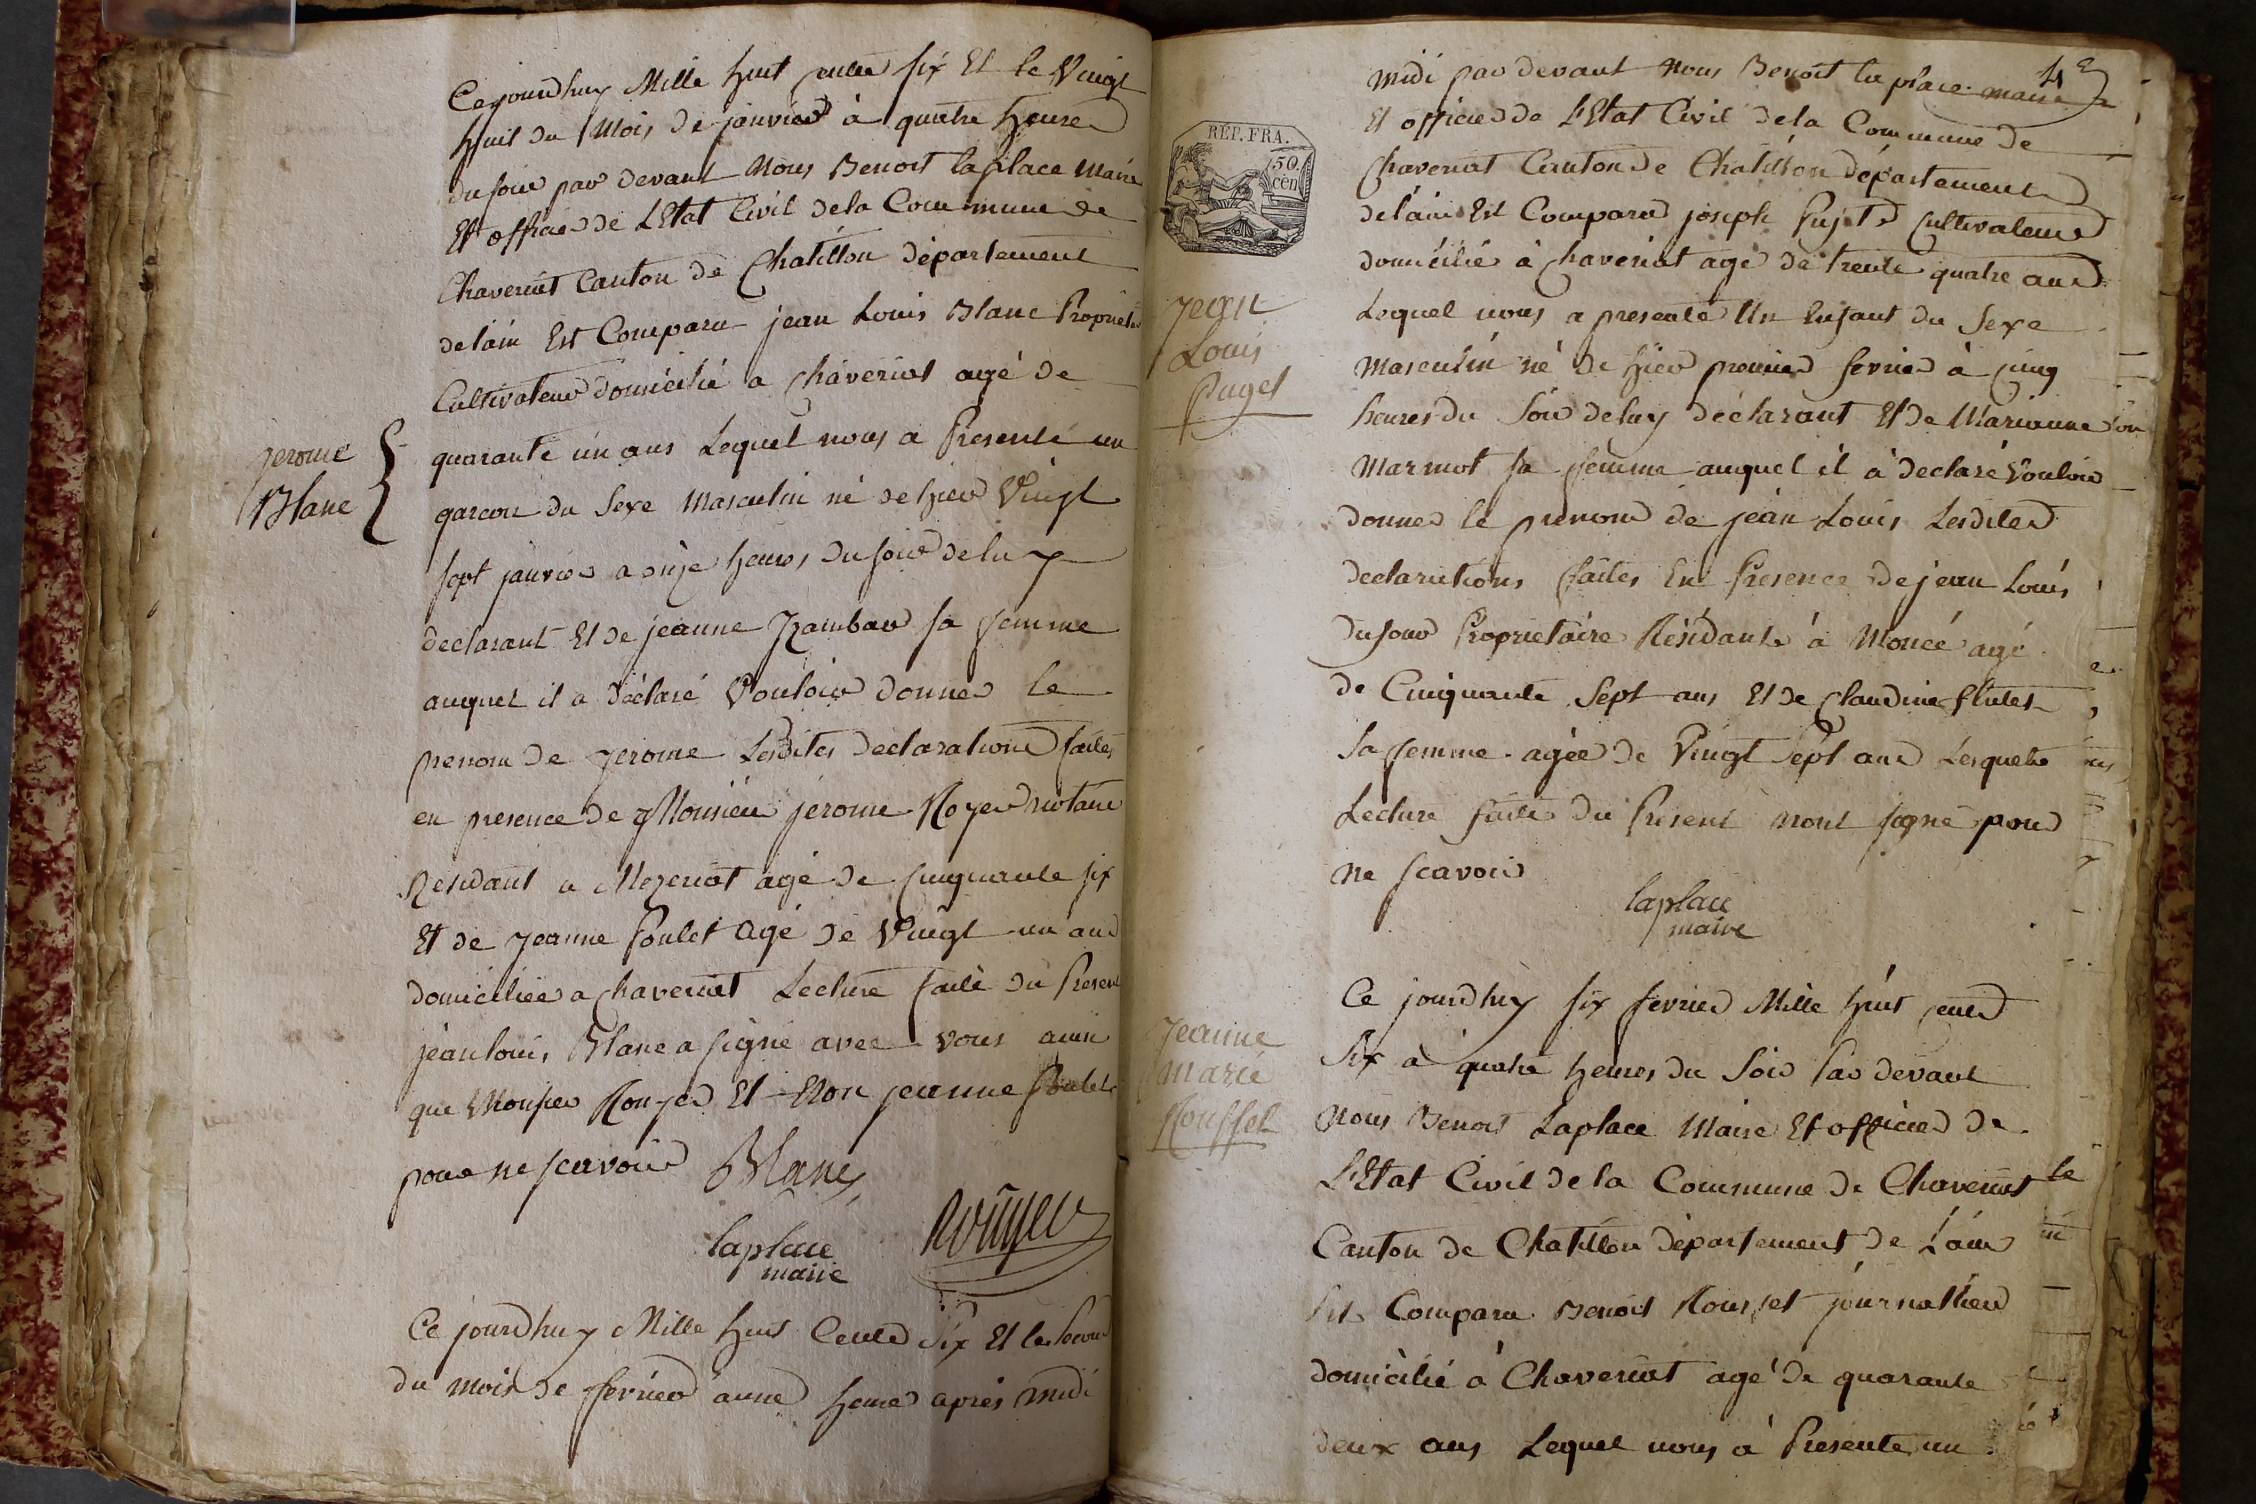 Cejourdhuy Mille huit cents six Et le Vingt
huit du Mois de janvier à quatre heure
du soir par devant Nous Benoit laplace Maire
Et officier de L'Etat Civil de la Commune de
Chaveriat Canton de Chatillon département
de lain Est Comparu jean Louis Blanc
Cultivateur domicilié a chaveriat agé de
quarante un ans Lequel nous a Presenté un
garcon du Sexe Masculin né de hier Vingt
sept janvier a onze heures du soir de luy
declarant Et de jeanne Rambau sa femme
auquel il a déclaré Vouloir donner le
prenom de jerome Lesdites declarations faites
en presence de Monsieu jérome Royer notaire
Residant a Mezeriat agé de cinquante six
Et de jeanne Poulet agé de Vingt un ans
domiciliée a chaveriat Lecture faite du Present
jean louis Blanc a signé avec vous ainsi
que Monsier Rouyer Et Non jeanne Poulet
pour ne scavoir Blanc
laplace
maire
Rouyer
Jerome
Blanc
Ce jourdhuy Mille huit Cents Six Et le Second
du mois de fevrier aune heure après midi
4
midi par devant Nous Benoit la place maire
Et officier de L'Etat Civil de la Commune de
Chaveriat Canton de Chatillon département
de lain Est Comparu joseph Pujet Cultivateur
domicilié à chaveriat agé de trente quatre ans
Lequel nous a presenté Un Enfant du Sexe
Masculin né de hier premier fevrier à cinq
heures du Soir de luy déclarant Et de Marianne
Marmot sa femme auquel il à declaré Vouloir
donner le prenom de jean Louis Lesdites
declarations faites En Presence de jean Louis
dufour Proprietaire Résidant à Moncé agé
de Cinquante Sept ans Et de claudine
Sa femme agée de Vingt sept ans Lesquels
Lecture faite du Présent nont signé pour
ne scavoir
laplace
maire
REP. FRA.
50.
cen
Jean
Louis
Puget
Ce jourdhuy six fevrier Mille huit cents
Six à quatre heures du Soir Par devant
Nous Benoit Laplace Maire Et officier de
L'Etat Civil de la Commune de Chaveriat
Canton de Chatillon département de Lain
Est Comparu Benoit Rousset journallier
domicilié à Chaveriat agé de quarante
deux ans Lequel nous à Presenté un
Jeanne
Marie
Roussel